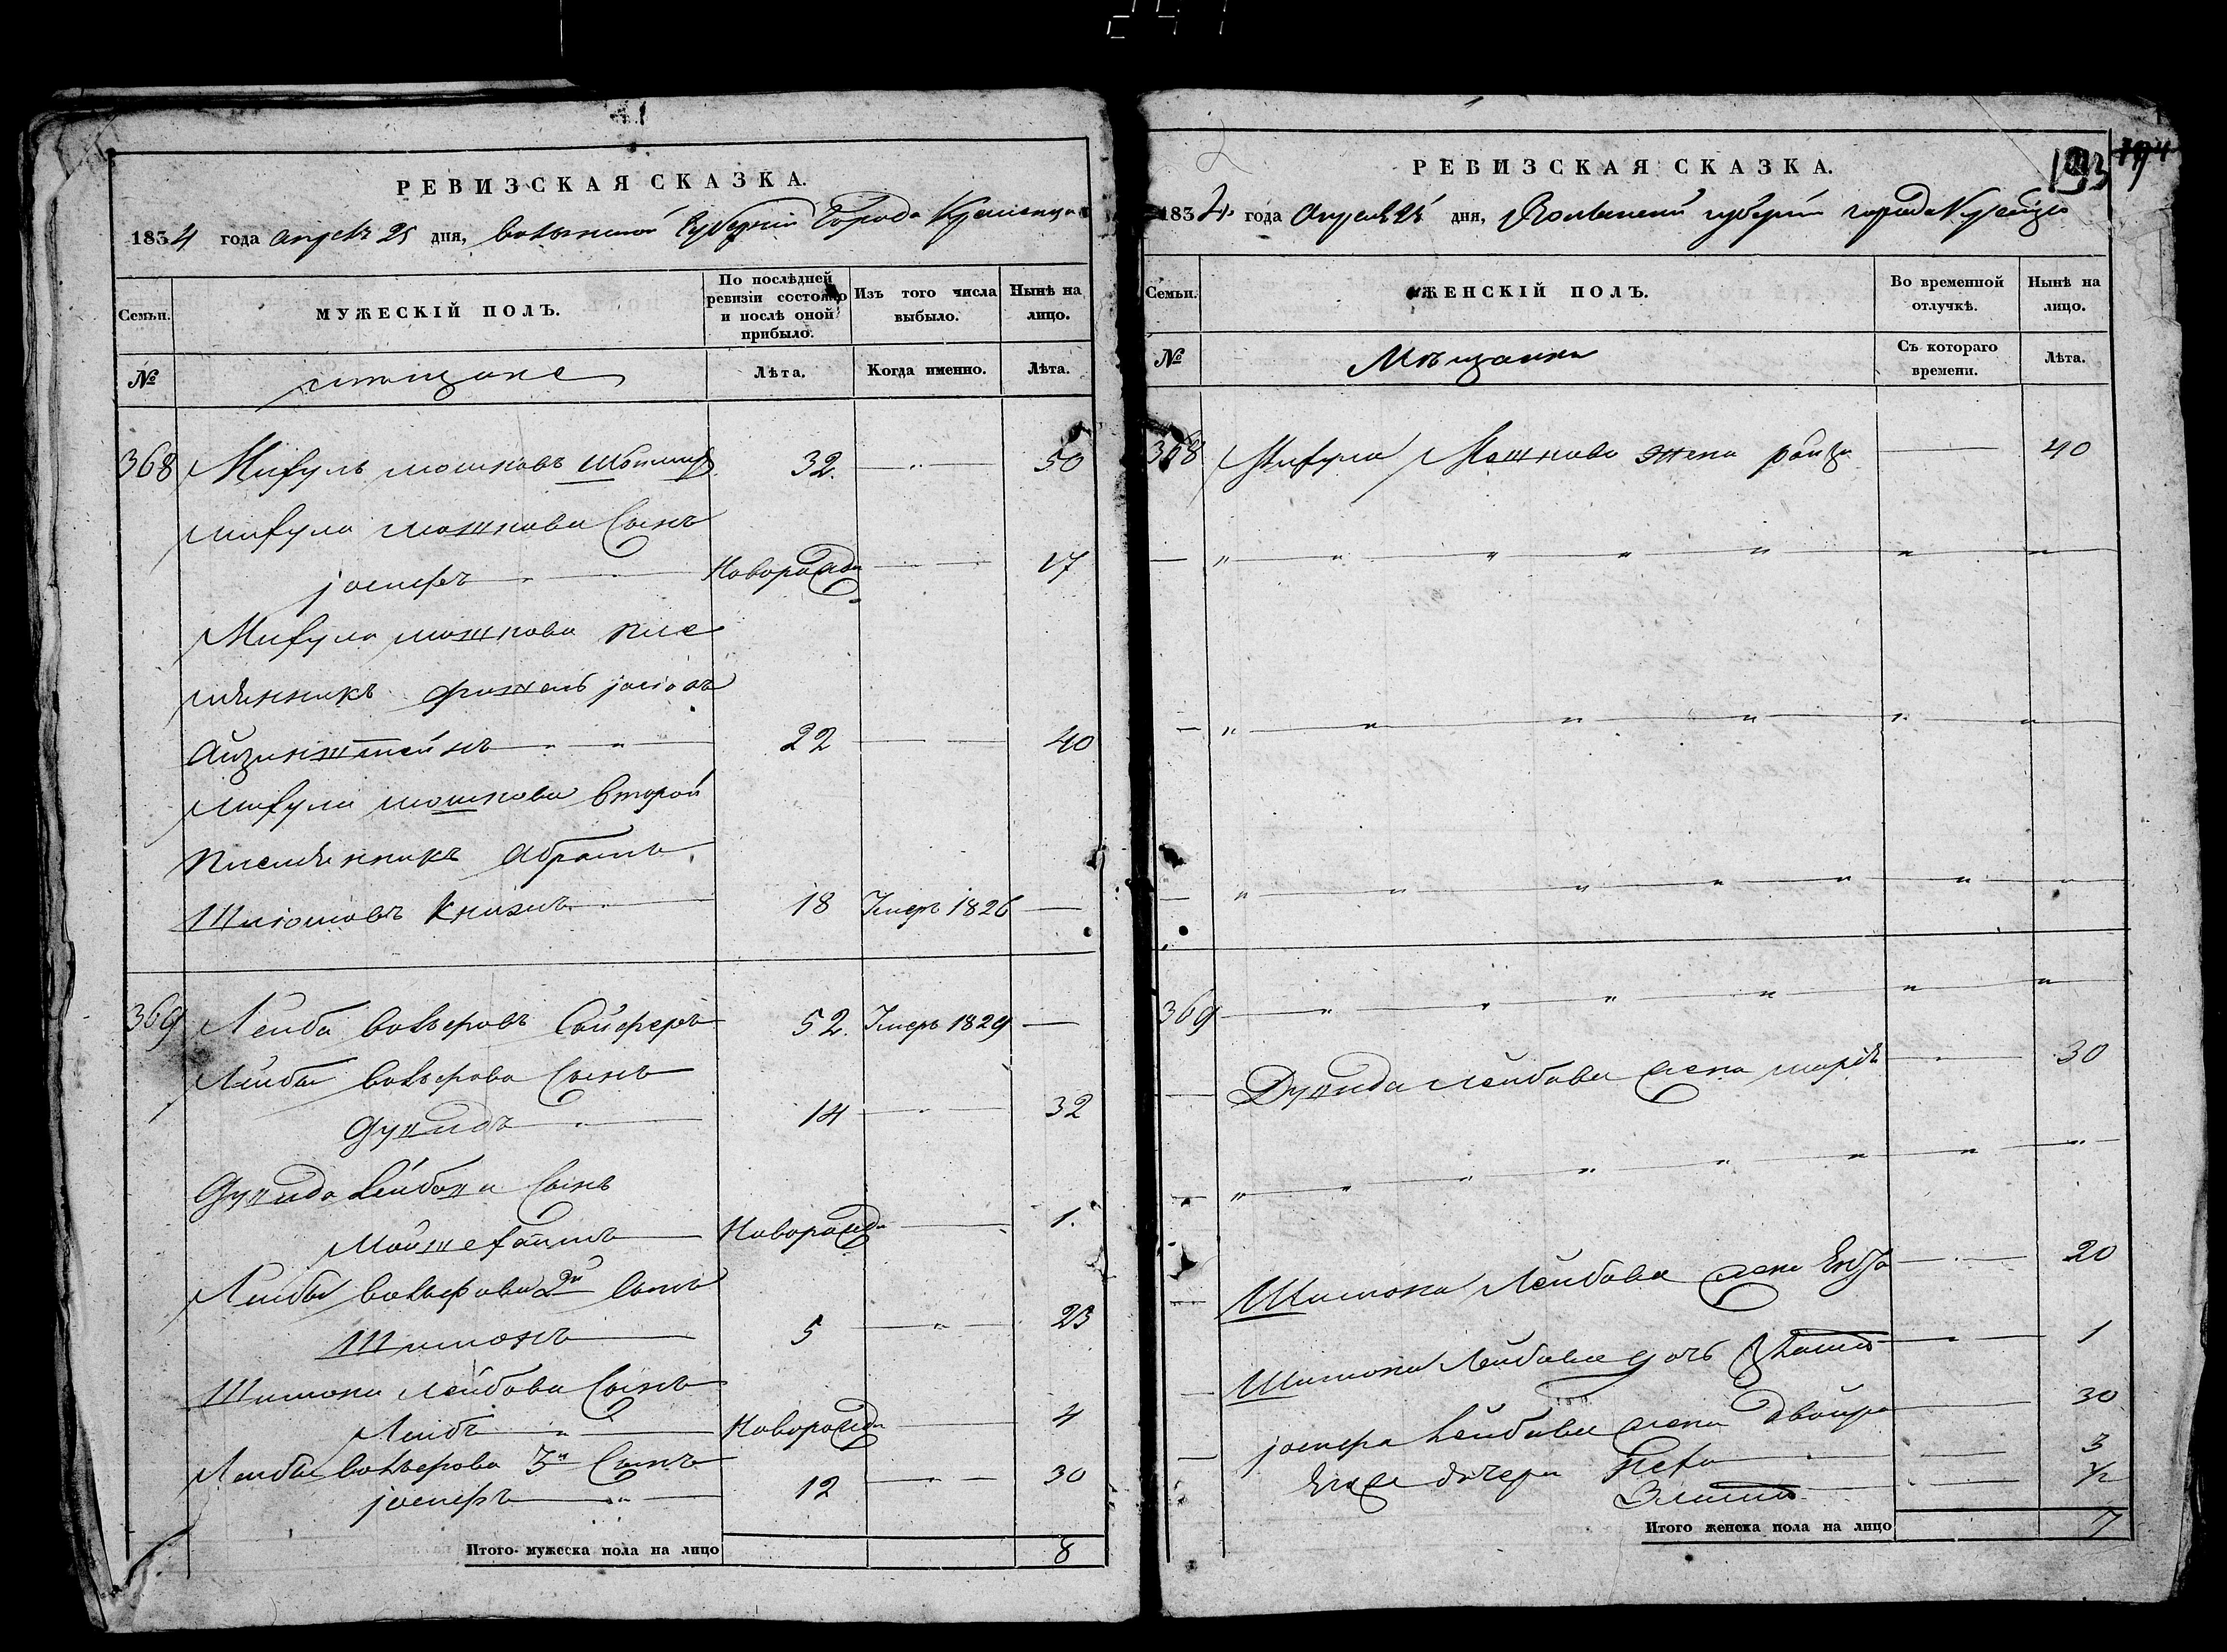 РЕВИЗСКАЯ СКАЗКА.
1834 года апреля 25 дня, Волынской Губернии Города Кременца
Семьи. МУЖЕСКІЙ ПОЛЪ. По послѣдней ревизіи состояло и послѣ оной прибыло. Изъ того числа выбыло. Нынѣ на лицо.
№ мѣщане Лѣта. Когда именно. Лѣта.
368 Михуль мошковъ 32. 50
михуля мошкова Сынъ
іосифъ Новорожд 17
Михуля мошкова пле
мянникъ іосіовъ
Айзинштейнъ 22 40
михуля мошкова второй
племянникъ Абрамъ
Шліомовъ 18 Умеръ 1826
369 Лейба вольфовъ 52. Умеръ 1829
Лейбы вольфова Сынъ
Дувидъ 14 32
Дувида Лейбова Сынъ
Новорожд 1.
Лейбы вольфова 2й Сынъ
Шимонъ 5 23
Шимона лейбова Сынъ
Лейбъ Новорожд 4
Лейбы вольфова 3й Сынъ
іосифъ 12 30
Итого мужеска пола на лицо 8
РЕВИЗСКАЯ СКАЗКА.
193 194
1834 года Апреля 25 дня, Волынской губерніи города Кременца
Семьи. ЖЕНСКІЙ ПОЛЪ. Во временной отлучкѣ. Нынѣ на лицо.
№ Мѣщанки Съ котораго времени. Лѣта.
368 Михуля Мошкова жена райза 40
369
Дувида лейбова жена 30
Шимона Лейбова жена 20
Шимона Лейбова дочь 1
іосифа Лейбова жена двойра 30
Его дочери 3
Злата 1/2
Итого женска пола на лицо 7